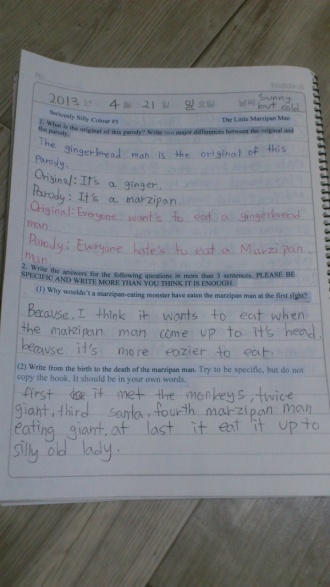 2013 년 4 월 21 일 일 요일 날씨 Sunny but cold
Seriously Silly Colour #5 The Little Marzipan Man
1. What is the original of this parody? Write two major differences between the original and
the parody.
The gingerbread man is the original of this
Parody.
Original: It's a ginger.
Parody: It's a marzipan.
Original: Everyone want's to eat a gingerbread
man.
Parody: Everyone hate's to eat a Marzipan
man.
2. Write the answers for the following questions in more than 3 sentences. PLEASE BE
SPECIFIC AND WRITE MORE THAN YOU THINK IT IS ENOUGH.
(1) Why wouldn't a marzipan-eating monster have eaten the marzipan man at the first sight?
Because, I think it wants to eat when
the marzipan man come up to it's head,
because it's more eazier to eat.
(2) Write from the birth to the death of the marzipan man. Try to be specific, but do not
copy the book. It should be in your own words.
first it met the monkeys, twice
giant, third santa, fourth marzipan man
eating giant, at last it eat it up to
silly old lady.